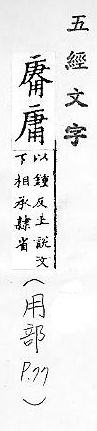 五經文字
庸
以鍾反上說文
下相承隷省
(用部 P.77)